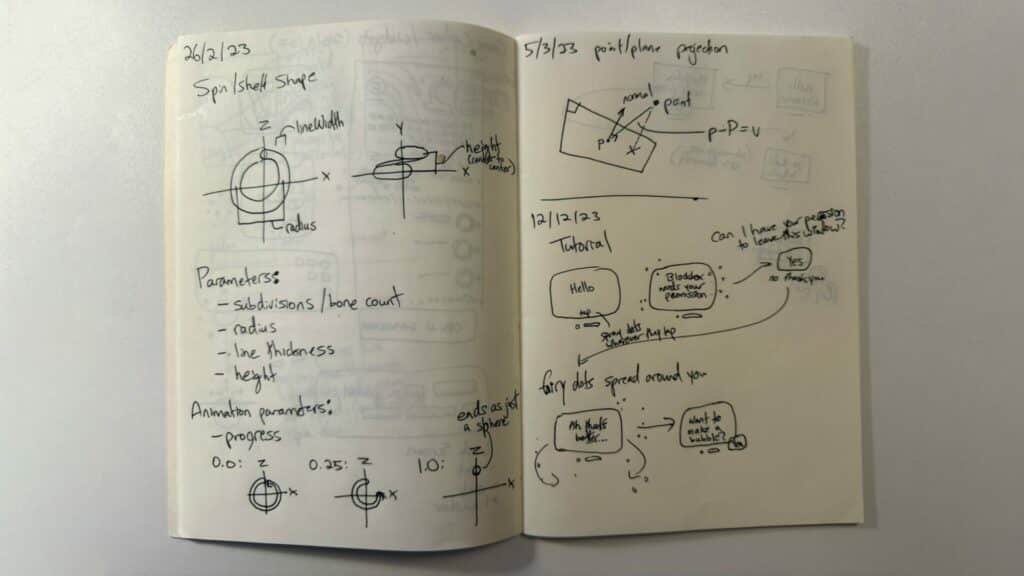 26/2/23
Spin/shell shape
Z
lineWidth
X
radius
Y
height
(center to center)
X
Parameters:
- subdivisions / bone count
- radius
- line thickness
- height
Animation parameters:
- progress
ends as just
a sphere
0.0:
Z
X
0.25:
Z
X
1.0:
Z
X
5/3/23 point/plane projection
normal
point
P
p-P=v
12/12/23
Tutorial
Can I have your permission
to leave this window?
Hello
needs your
permission
Yes
no thank you
fairy dots spread around you
Ah that's
better...
Want to
make a
bubble?